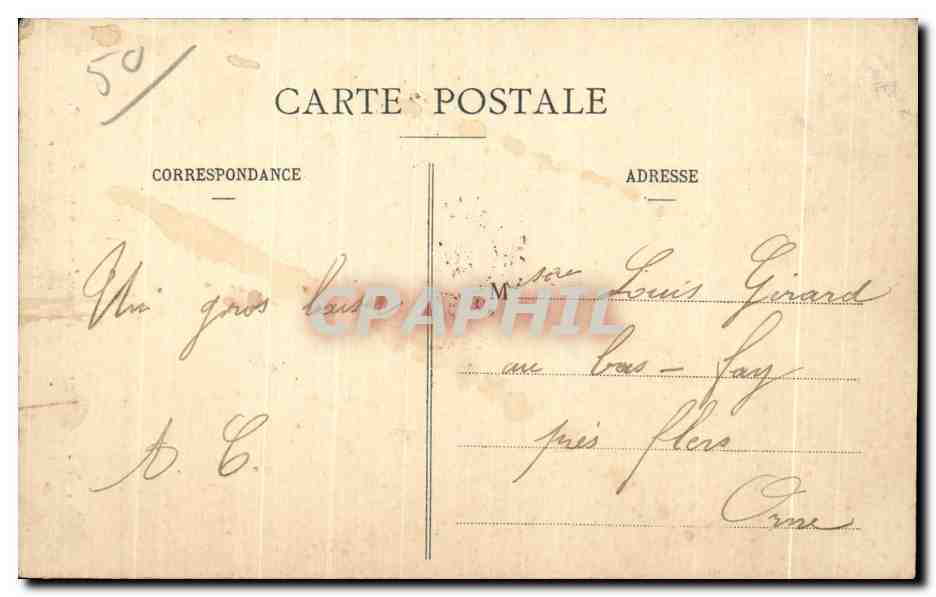 50/
CARTE POSTALE
CORRESPONDANCE
ADRESSE
Un gros baiser
A. C.
M Louis Girard
au bas-fay
près flers
Orne
CPAPHIL